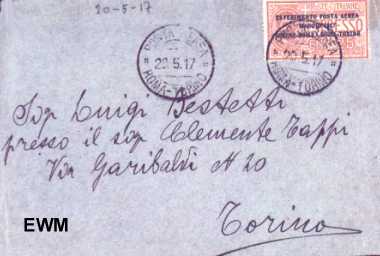 20-5-17
POSTA AEREA
20.5.17
ROMA-TORINO
ESPERIMENTO POSTA AEREA
MAGGIO 1917
TORINO-ROMA · ROMA-TORINO
POSTA AEREA
20.5.17
ROMA-TORINO
Sig Luigi Bestetti
presso il sig Clemente Tappi
Via Garibaldi N 20
Torino
EWM